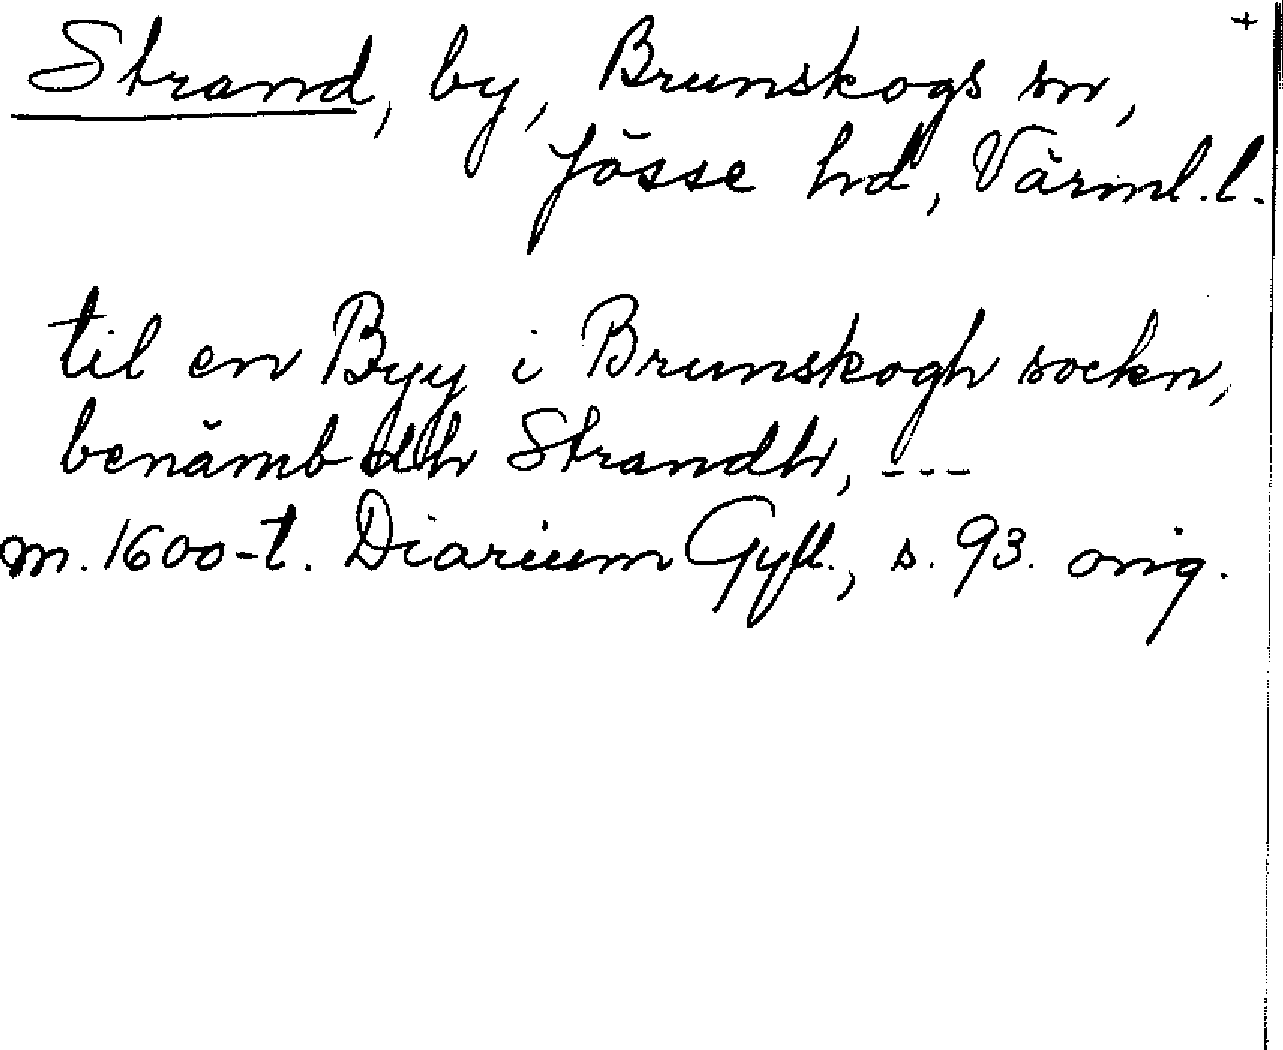 +
Strand, by, Brunskogs sn,
Jösse hd, Värml.l.
til en Byy i Brunskogh sockn,
benämbdh Strandh, ---
m. 1600-t. Diarium Gyll., s. 93. orig.